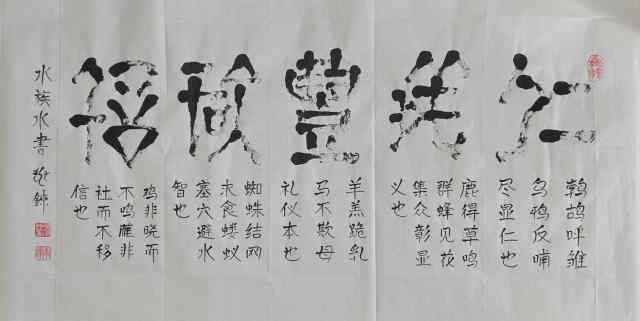 仁
鹁鸪呼雏
乌鸦反哺
尽显仁也
義
鹿得草鸣
群蜂见花
集众彰显
义也
豊
羊羔跪乳
马不欺母
礼仪本也
智
蜘蛛结网
求食蝼蚁
塞穴避水
智也
信
鸡非晓而
不鸣雁非
社而不移
信也
水族水书